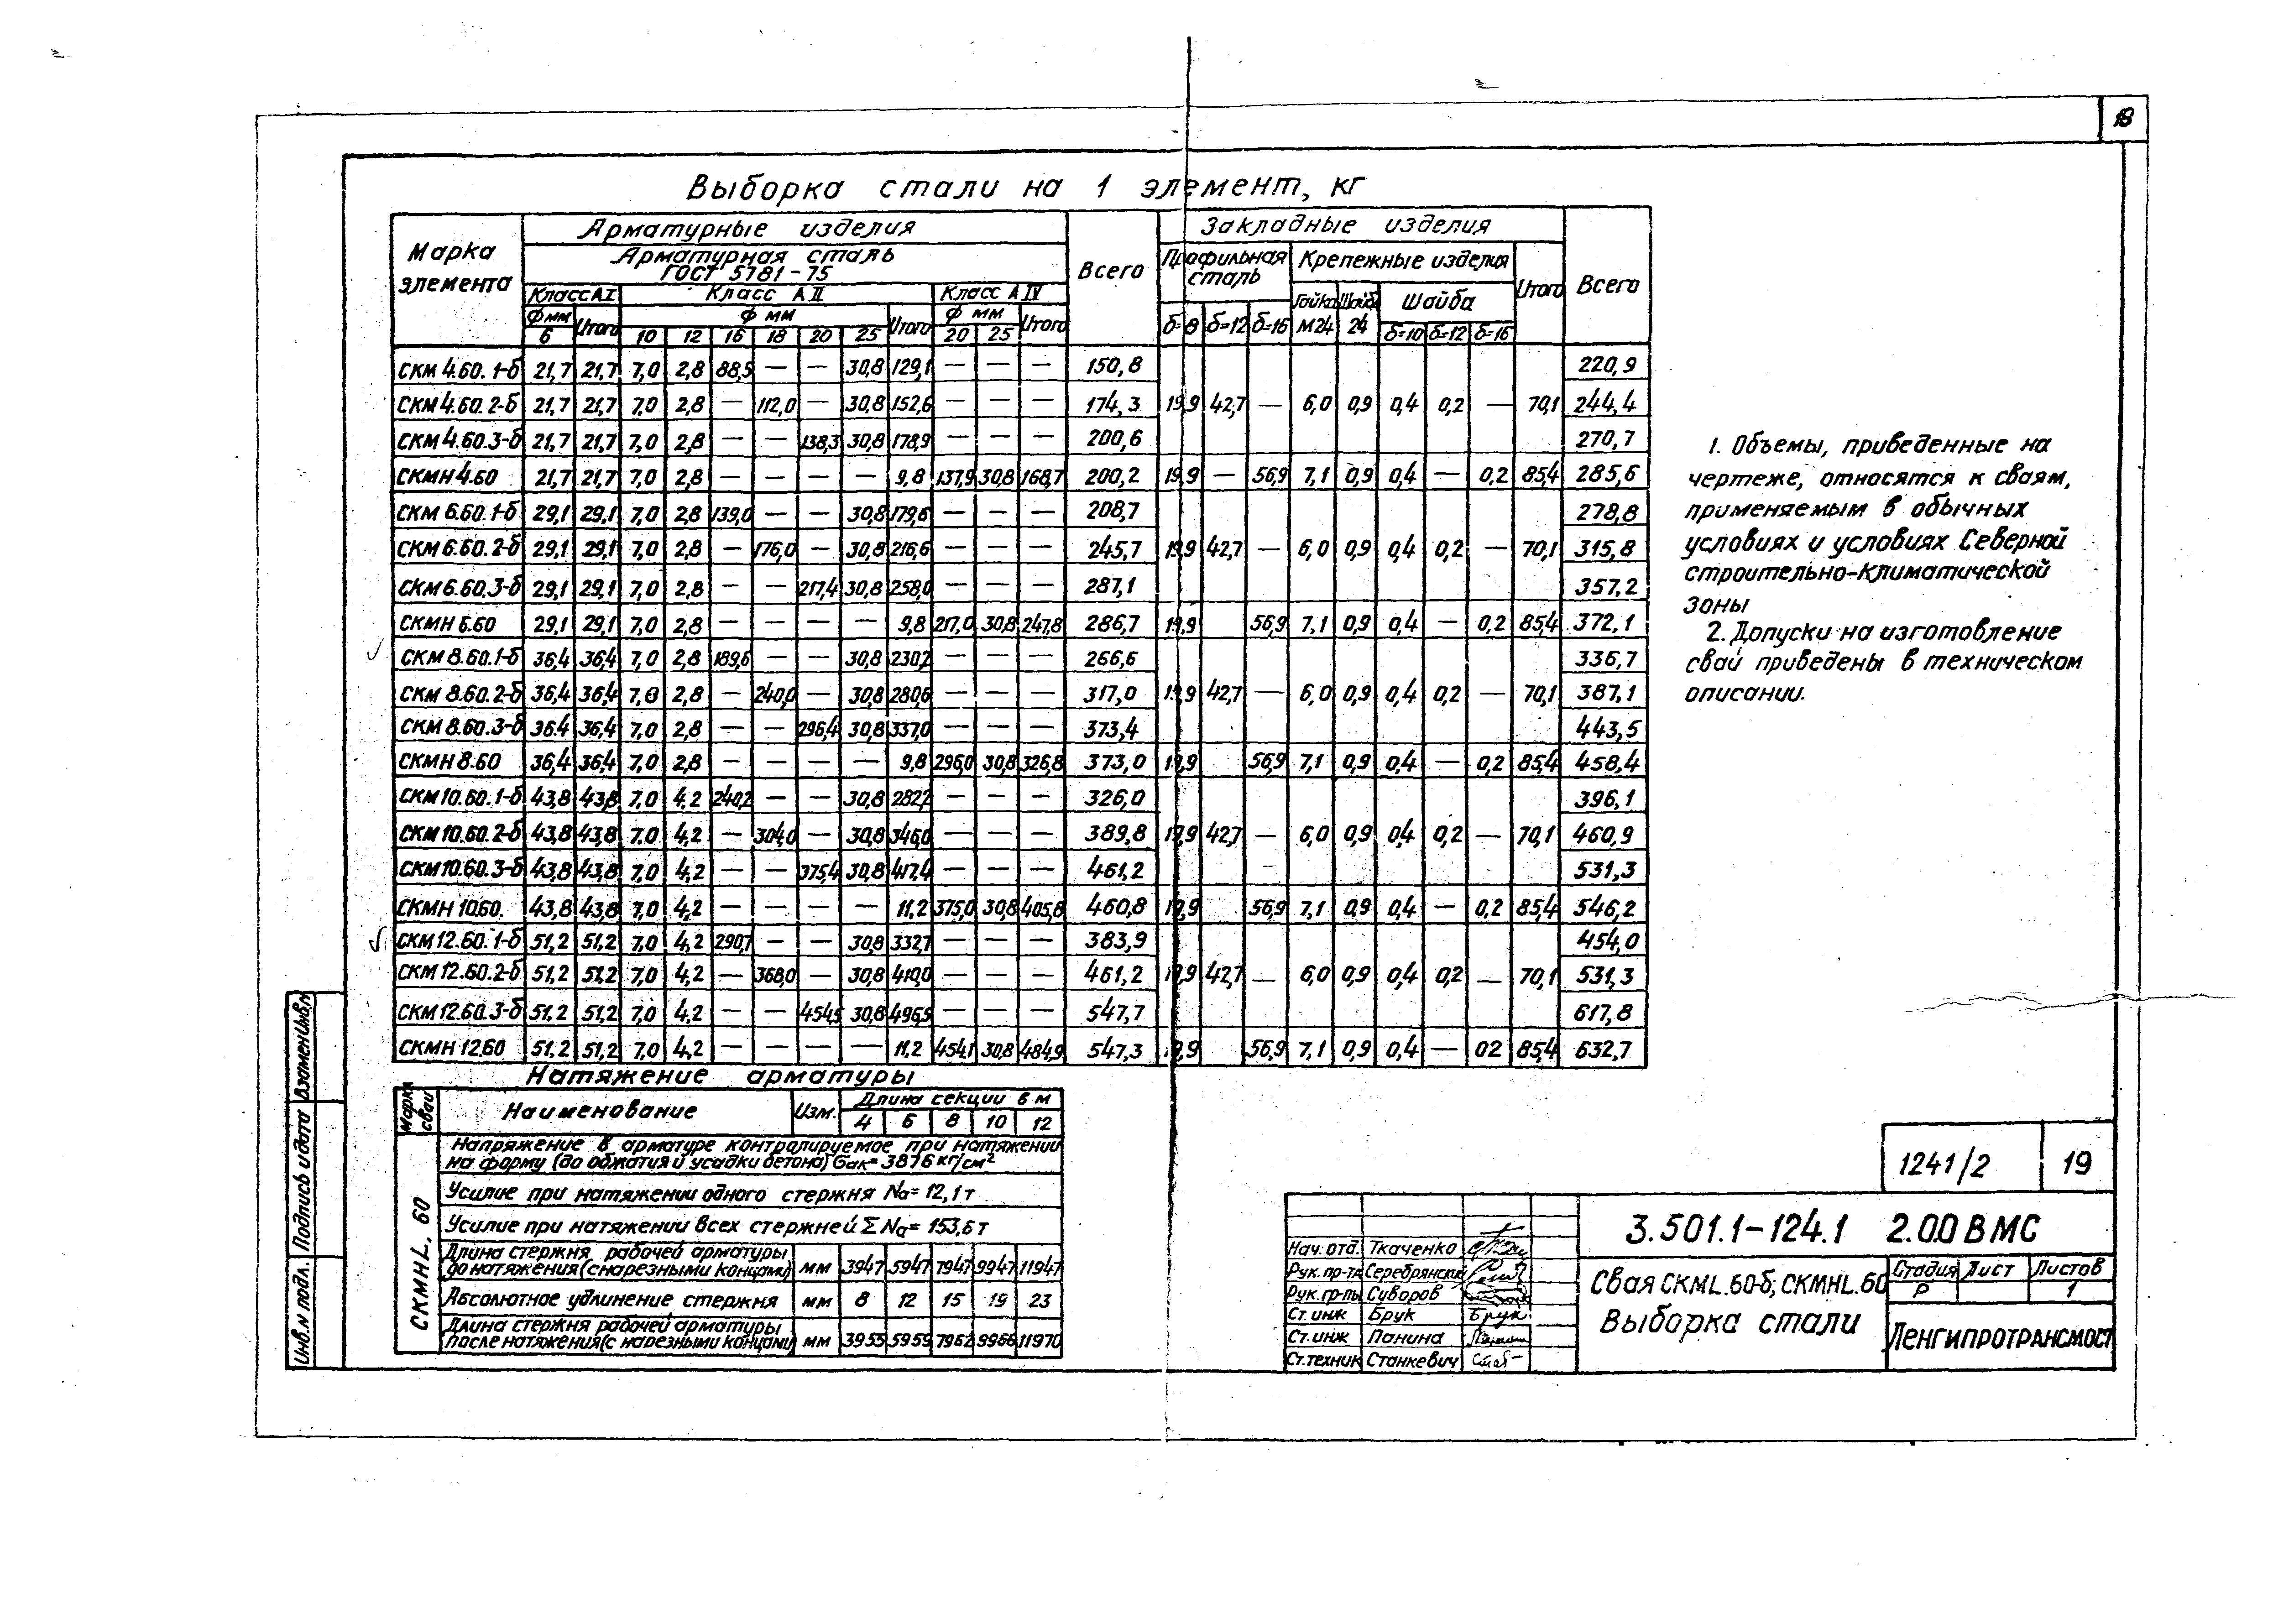 18
Выборка стали на 1 элемент, кг
Марка элемента
Арматурные изделия
Всего
Закладные изделия
Всего
Арматурная сталь
ГОСТ 5781-75
Профильная сталь
Крепежные изделия
Итого
Класс АI
Класс АII
Класс АIV
Гайка М24
Шайба 24
Шайба
ф мм
Итого
ф мм
Итого
ф мм
Итого
δ=8 δ=12 δ=16
δ=10 δ=12 δ=16
6 10 12 16 18 20 25 20 25
СКМ 4.60.1-б 21,7 21,7 7,0 2,8 88,5 — — 30,8 129,1 — — — 150,8 220,9
СКМ 4.60.2-б 21,7 21,7 7,0 2,8 — 112,0 — 30,8 152,6 — — — 174,3 19,9 42,7 — 6,0 0,9 0,4 0,2 — 70,1 244,4
СКМ 4.60.3-б 21,7 21,7 7,0 2,8 — — 138,3 30,8 178,9 — — — 200,6 270,7
СКМН 4.60 21,7 21,7 7,0 2,8 — — — — 9,8 137,9 30,8 168,7 200,2 19,9 — 56,9 7,1 0,9 0,4 — 0,2 85,4 285,6
СКМ 6.60.1-б 29,1 29,1 7,0 2,8 139,0 — — 30,8 179,6 — — — 208,7 278,8
СКМ 6.60.2-б 29,1 29,1 7,0 2,8 — 176,0 — 30,8 216,6 — — — 245,7 19,9 42,7 — 6,0 0,9 0,4 0,2 — 70,1 315,8
СКМ 6.60.3-б 29,1 29,1 7,0 2,8 — — 217,4 30,8 258,0 — — — 287,1 357,2
СКМН 6.60 29,1 29,1 7,0 2,8 — — — — 9,8 217,0 30,8 247,8 286,7 19,9 56,9 7,1 0,9 0,4 — 0,2 85,4 372,1
СКМ 8.60.1-б 36,4 36,4 7,0 2,8 189,6 — — 30,8 230,2 — — — 266,6 336,7
СКМ 8.60.2-б 36,4 36,4 7,0 2,8 — 240,0 — 30,8 280,6 — — — 317,0 19,9 42,7 — 6,0 0,9 0,4 0,2 — 70,1 387,1
СКМ 8.60.3-б 36.4 36.4 7,0 2,8 — — 296,4 30,8 337,0 — — — 373,4 443,5
СКМН 8.60 36,4 36,4 7,0 2,8 — — — — 9,8 296,0 30,8 326,8 373,0 19,9 56,9 7,1 0,9 0,4 — 0,2 85,4 458,4
СКМ 10.60.1-б 43,8 43,8 7,0 4,2 240,2 — — 30,8 282,2 — — — 326,0 396,1
СКМ 10.60.2-б 43,8 43,8 7,0 4,2 — 304,0 — 30,8 346,0 — — — 389,8 19,9 42,7 — 6,0 0,9 0,4 0,2 — 70,1 460,9
СКМ 10.60.3-б 43,8 43,8 7,0 4,2 — — 375,4 30,8 417,4 — — — 461,2 531,3
СКМН 10.60. 43,8 43,8 7,0 4,2 — — — — 11,2 375,0 30,8 405,8 460,8 19,9 56,9 7,1 0,9 0,4 — 0,2 85,4 546,2
СКМ 12.60.1-б 51,2 51,2 7,0 4,2 290,7 — — 30,8 332,7 — — — 383,9 454,0
СКМ 12.60.2-б 51,2 51,2 7,0 4,2 — 368,0 — 30,8 410,0 — — — 461,2 19,9 42,7 — 6,0 0,9 0,4 0,2 — 70,1 531,3
СКМ 12.60.3-б 51,2 51,2 7,0 4,2 — — 454,5 30,8 496,5 — — — 547,7 617,8
СКМН 12.60 51,2 51,2 7,0 4,2 — — — — 11,2 454,1 30,8 484,9 547,3 19,9 56,9 7,1 0,9 0,4 — 02 85,4 632,7
1. Объемы, приведенные на
чертеже, относятся к сваям,
применяемым в обычных
условиях и условиях Северной
строительно-климатической
зоны
2. Допуски на изготовление
свай приведены в техническом
описании.
Натяжение арматуры
Марка сваи
Наименование
Изм.
Длина секции в м
4 6 8 10 12
СКМНL. 60
Напряжение в арматуре контролируемое при натяжении
на форму (до обжатия и усадки бетона) бак=3876 кг/см²
Усилие при натяжении одного стержня Nа=12,1т
Усилие при натяжении всех стержней ΣNа=153,6т
Длина стержня рабочей арматуры
до натяжения (с нарезными концами) мм 3947 5947 7947 9947 11947
Абсолютное удлинение стержня мм 8 12 15 19 23
Длина стержня рабочей арматуры
после натяжения (с нарезными концами) мм 3955 5959 7962 9966 11970
Взамен инв.н
Подпись и дата
Инв.н подл.
1241/2 19
3.501.1-124.1 2.00 ВМС
Нач. отд. Ткаченко
Рук. пр-та Серебрянский
Рук. гр-пы Суворов
Ст. инж Брук Брук
Ст. инж Панина
Ст. техник Станкевич
Свая СКМL.60-б; СКМНL.60
Выборка стали
Стадия Лист Листов
Р 1
Ленгипротрансмост